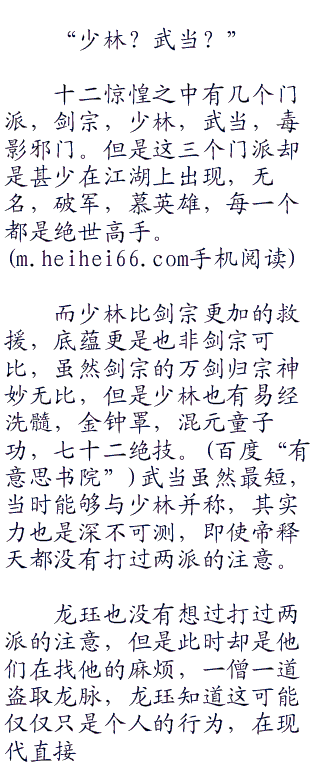 “少林？武当？”
十二惊惶之中有几个门
派，剑宗，少林，武当，毒
影邪门。但是这三个门派却
是甚少在江湖上出现，无
名，破军，慕英雄，每一个
都是绝世高手。
(m.heihei66.com手机阅读)
而少林比剑宗更加的救
援，底蕴更是也非剑宗可
比，虽然剑宗的万剑归宗神
妙无比，但是少林也有易经
洗髓，金钟罩，混元童子
功，七十二绝技。(百度“有
意思书院”)武当虽然最短，
当时能够与少林并称，其实
力也是深不可测，即使帝释
天都没有打过两派的注意。
龙珏也没有想过打过两
派的注意，但是此时却是他
们在找他的麻烦，一僧一道
盗取龙脉，龙珏知道这可能
仅仅只是个人的行为，在现
代直接